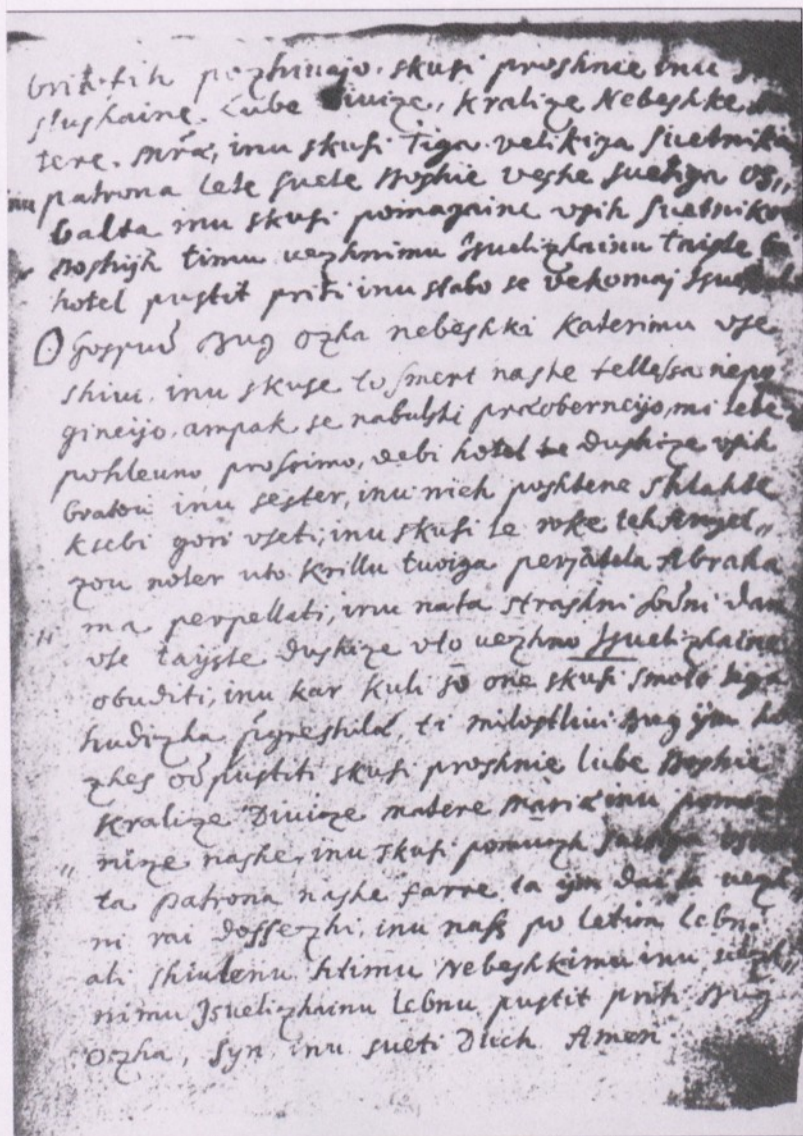 britofih pozhivajo. skusi proshnie inu
slushaine. Lube Divize, Kralize Nebeshke
tere. Mrä, inu skusi tiga velikiga Suetnika
inu patrona lete suete Boshie veshe suetiga Os„
balta inu skusi pomagaine vsih Suetnikou
Boshyh timu vezhnimu Isuelizhainu taiste
hotel pustit priti inu slabo se vekomaj
O Gospud Bug Ozha nebeshki katerimu vse
shivi, inu skuse to smert nashe tellessa nepo
gineijo, ampak se nabulshi præoberneijo, mi tebe
pohleuno prossimo, debi hotel te dushize vsih
bratou inu sester, inu nieh poshtene shlahte
ksebi gori vseti, inu skusi te roke teh Angel„
zou noter vto Krillu tvoiga perjatela Abraha
„ ma perpellati, inu nata strashni sodni dan
vse tayste dushize vto vezhno Isuelizhaine
obuditi, inu kar kuli so one skusi smoto tiga
hudizha pregreshile, ti milostlivi Bug ym ho
zhes odpustiti skusi proshnie lube Boshie
Kralize Divize matere Mariæ inu pomoz
„ nize nashe, inu skusi pomuzh suetiga
ta patrona nashe farre, ta ym dai ta vezh„
ni rai dossezhi, inu nass po letim lebn
ali shivlenu htimu Nebeshkimu inu vezh„
nimu Isuelizhainu lebnu pustit priti Bug
Ozha, Syn, inu sueti Duch. Amen